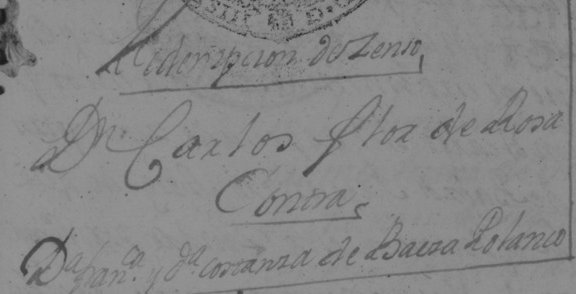 Redempcion de Zenso,
Dn. Carlos flor de Rosa
Contra
Da. franca. y da. costanza de Baeza Polanco